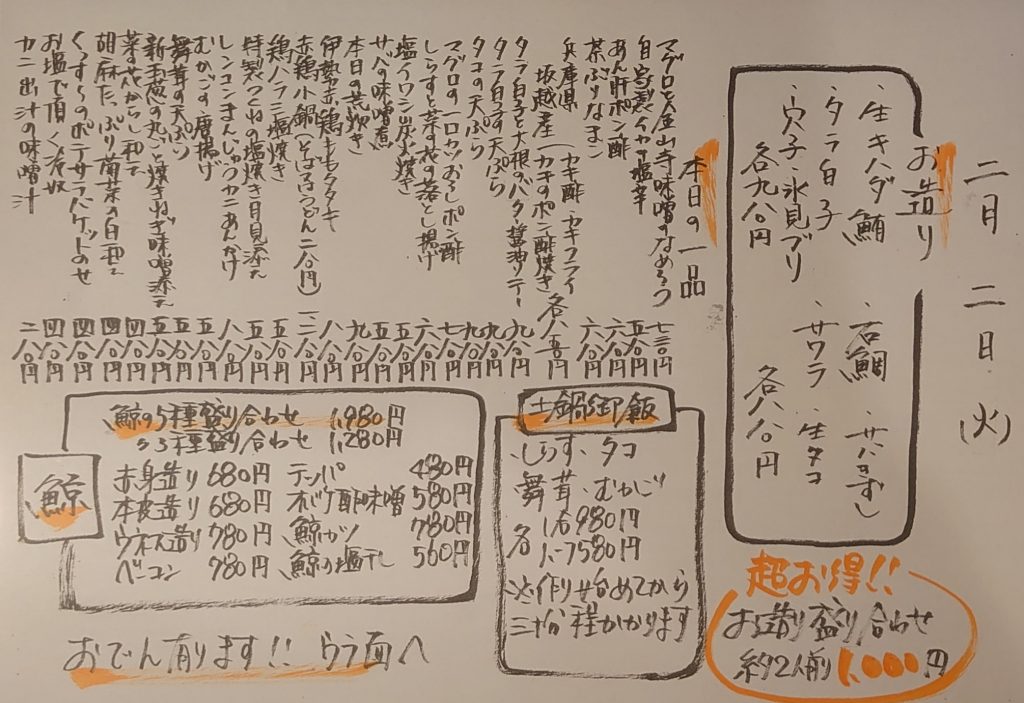 二月二日(火)
お造り
・生キハダ鮪 ・石鯛 ・サバきずし
・タラ白子 ・サワラ ・生タコ
・穴子・氷見ブリ
各九八〇円 各八八〇円
超お得!!
お造り盛り合わせ
約2人前 1,000円
本日の一品
マグロと金山寺味噌のなめろう 七三〇円
自家製イカの塩辛 五八〇円
あん肝ポン酢 六八〇円
茶ぶりなまこ 六八〇円
兵庫県
坂越産(カキ酢・カキフライ
カキのポン酢焼き 各八五〇円
タラ白子と大根のバター醤油ソテー 九八〇円
タラ白子の天ぷら 九八〇円
タコの天ぷら 九八〇円
マグロの一口カツおろしポン酢 七八〇円
しらすと菜の花の落とし揚げ 六八〇円
塩イワシ炭火焼き 五八〇円
サバの味噌煮 五八〇円
本日の荒炊き 九八〇円
伊勢赤鶏キモタタキ 八八〇円
赤鶏小鍋(そば・うどん二八〇円)
鶏ハラミ塩焼き 五八〇円
特製つくねの塩焼き月見添え 五八〇円
レンコンまんじゅうカニあんかけ 八八〇円
むかごの唐揚げ 五八〇円
舞茸の天ぷら 五八〇円
新玉葱の丸ごと焼きねぎ味噌添え 五八〇円
菜の花からし和え 四八〇円
胡麻たっぷり菊菜の白和え 四八〇円
くんすもののポテサラバケットのせ 四八〇円
お塩で頂く冷奴 四八〇円
カニ出汁の味噌汁 二八〇円
土鍋御飯
・しらす・タコ
舞茸・むかご
各 1合980円
ハーフ580円
※作り始めてから
三十分程かかります
鯨
鯨の5種盛り合わせ 1,980円
〃3種盛り合わせ 1,280円
赤身造り 680円 テッパ 480円
本皮造り 680円 オバケ酢味噌 580円
ウネス造り 780円 鯨カツ 780円
ベーコン 780円 鯨の塩干し 560円
おでん有ります!! ウラ面へ